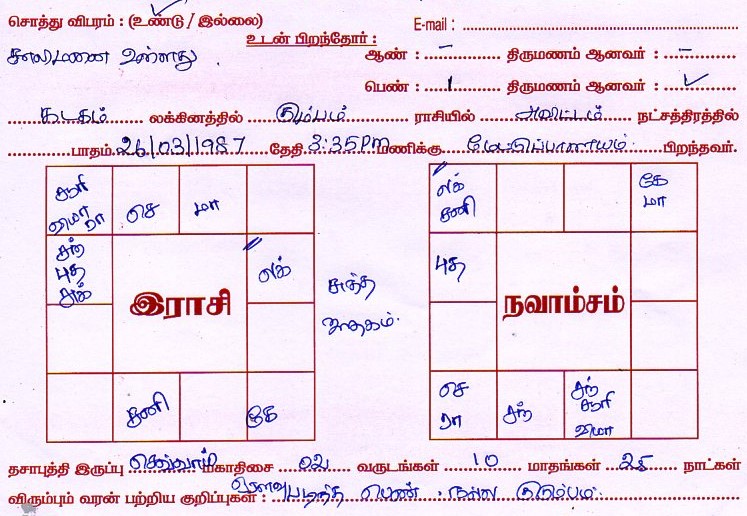 சொத்து விபரம் : (உண்டு / இல்லை) E-mail :
உடன் பிறந்தோர் :
காலிமனை உள்ளது. ஆண் : – திருமணம் ஆனவர் : –
பெண் : 1 திருமணம் ஆனவர் : ✓
கடகம் லக்கினத்தில் கும்பம் ராசியில் அவிட்டம் நட்சத்திரத்தில்
பாதம் 26/03/1987 தேதி 3:35Pm மணிக்கு மேட்டுப்பாளையம் பிறந்தவர்.
சூரி செ மா
வியா
ரா
சந் லக்
புத
சுக்
இராசி
சனி கே
சுத்த
ஜாதகம்.
லக் கே
சனி மா
புத
நவாம்சம்
செ சுந் சந்
ரா சூரி
வியா
தசாபுத்தி இருப்பு செவ்வாய் மகாதிசை 02 வருடங்கள் 10 மாதங்கள் 25 நாட்கள்
விரும்பும் வரன் பற்றிய குறிப்புகள் : படித்த பெண். நல்ல குடும்பம்.